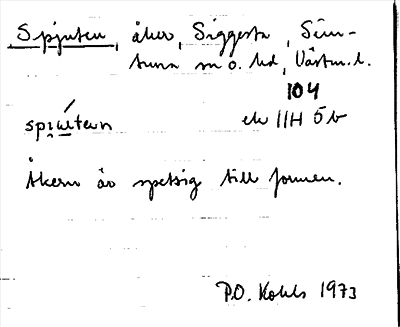 Spjuten, åker, Siggesta, Sim-
tuna sn o. hd, Västm.l.
104
spjutən ek 11H 5b
Åkern är spetsig till formen.
P.O. Kohls 1973